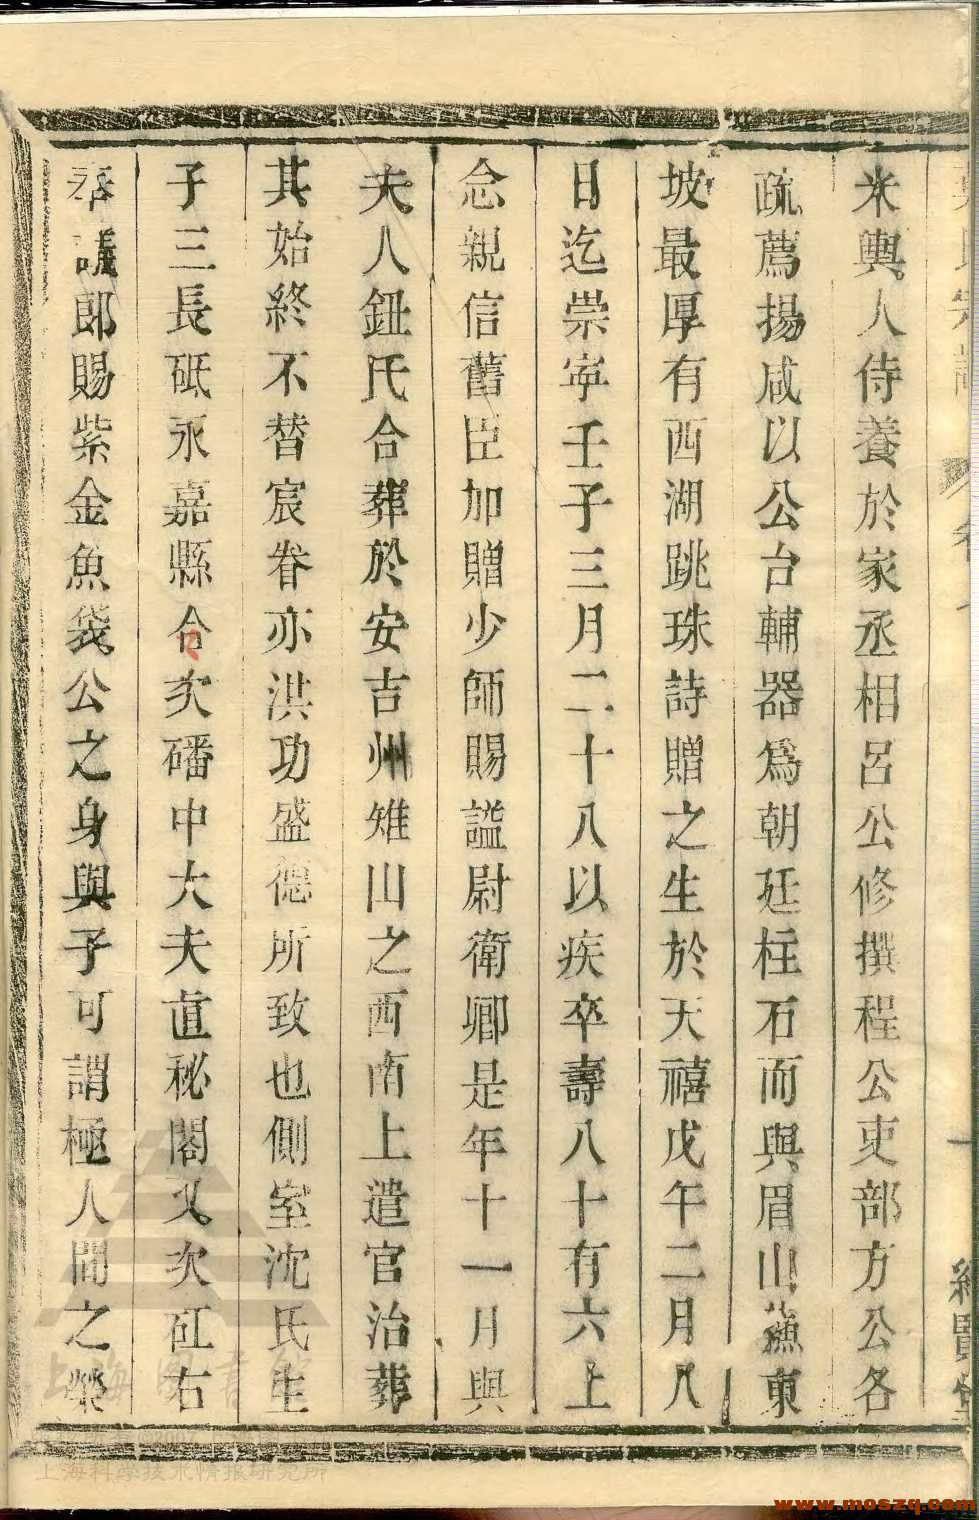 米輿人侍養於家丞相呂公修撰程公吏部方公各
疏薦揚咸以公台輔器爲朝廷柱石而與眉山蘓東
坡最厚有西湖跳珠詩贈之生於天禧戊午二月八
日迄崇寧壬子三月二十八以疾卒壽八十有六上
念親信舊臣加贈少師賜謚尉衛卿是年十一月與
夫人鈕氏合葬於安吉州雉山之西南上遣官治葬
其始終不替宸眷亦洪功盛德所致也側室沈氏生
子三長砥永嘉縣令次磻中大夫直秘閣又次矼右
奉議郎賜紫金魚袋公之身與子可謂極人間之榮
上海圖書館
上海科學技术情报研究所
www.moszq.com